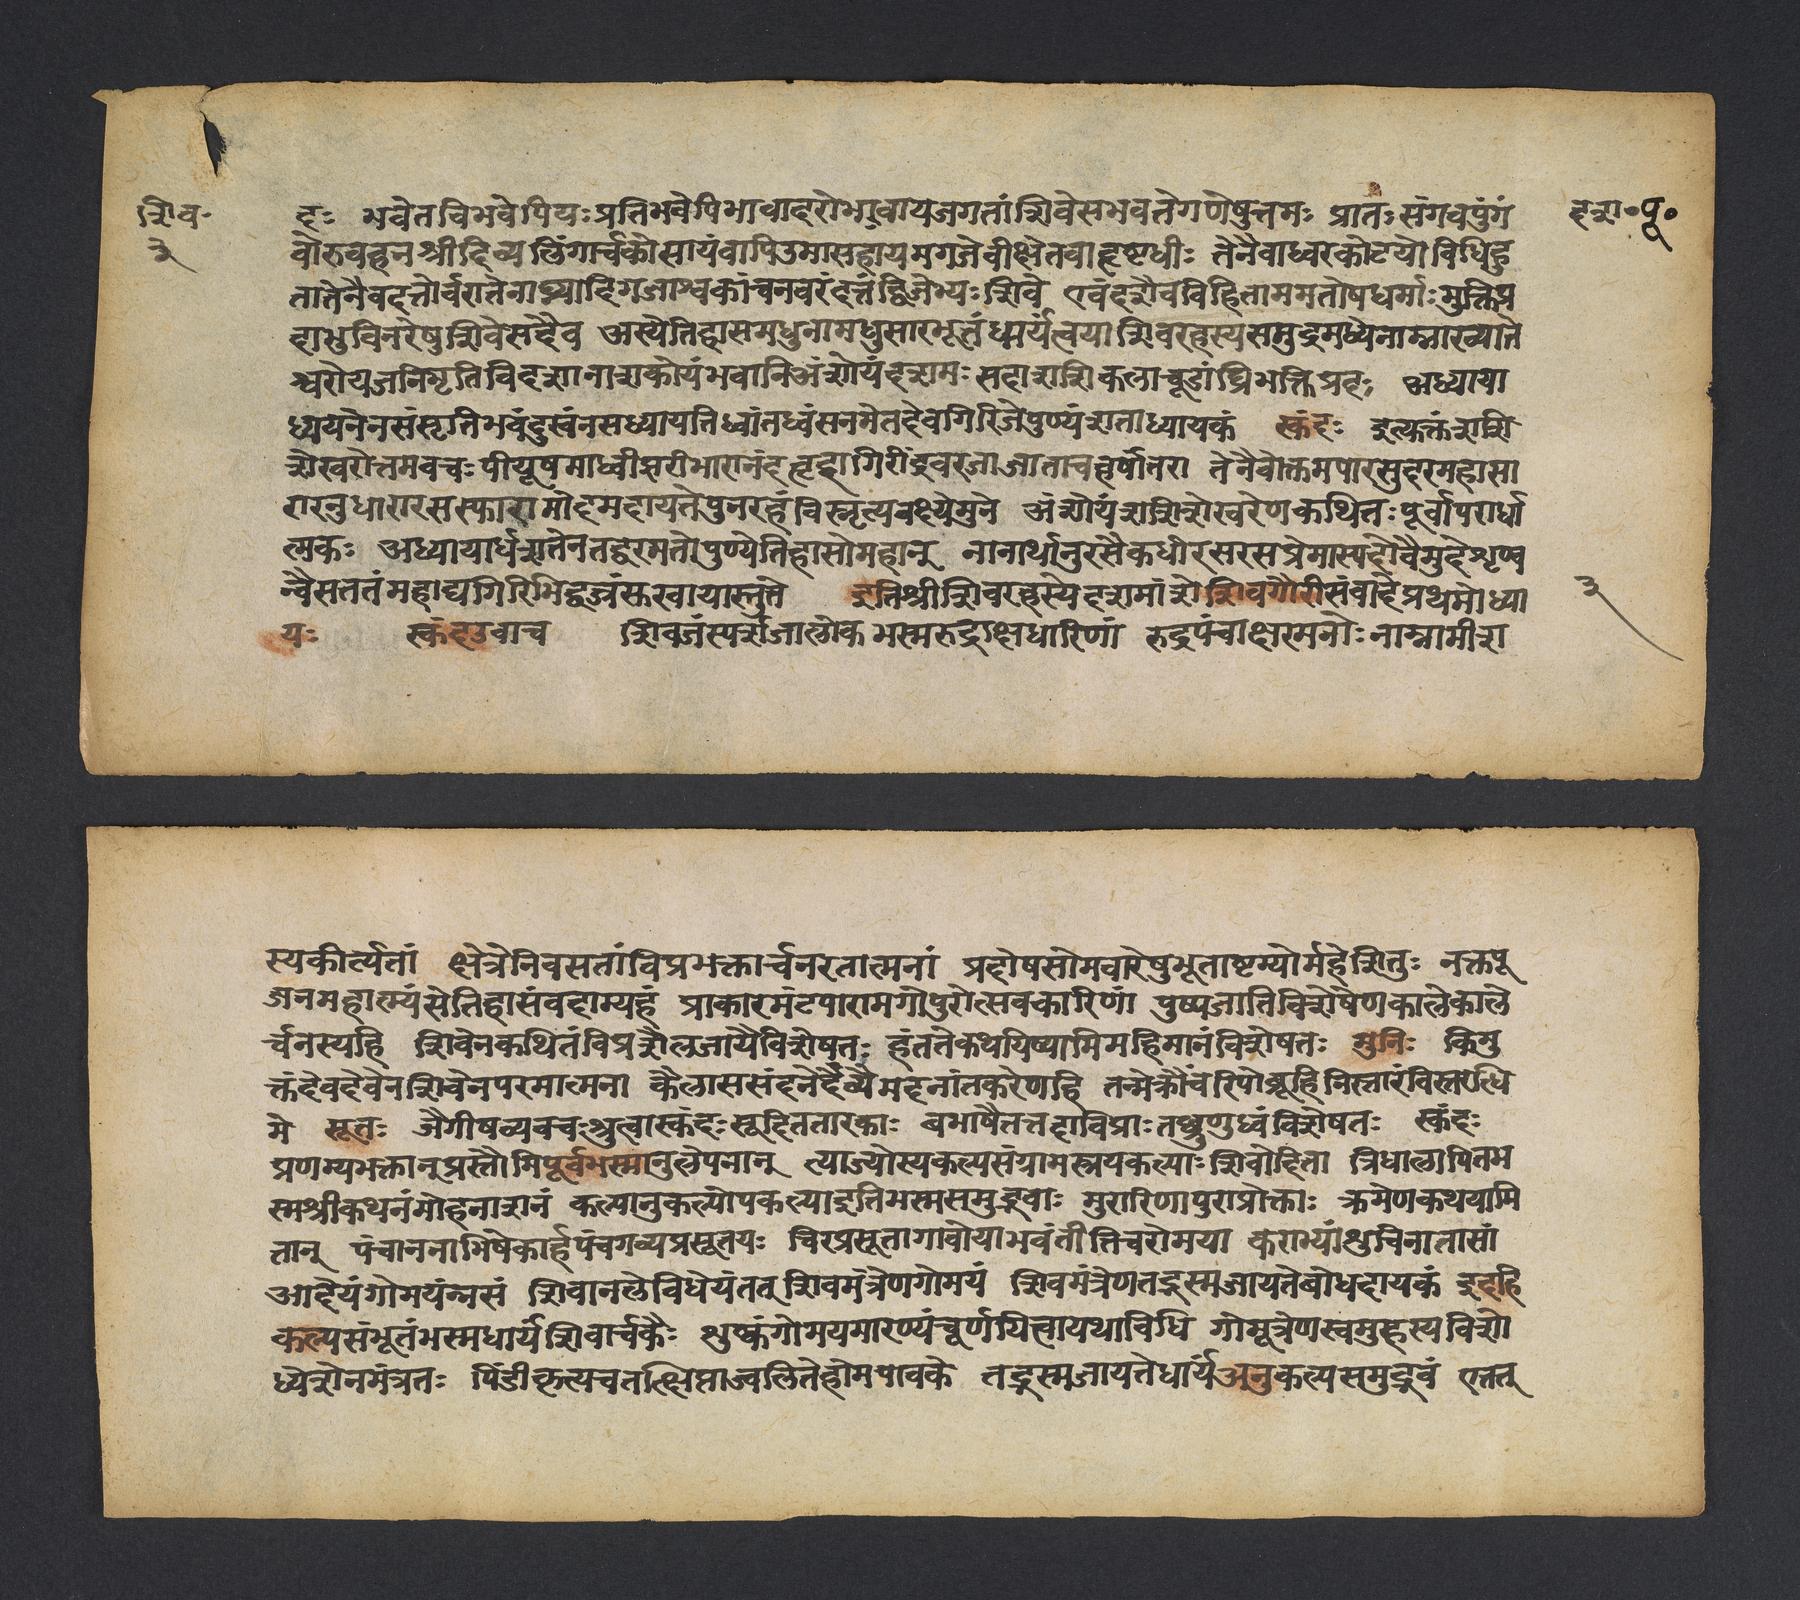 शिव॰
३
दशा॰पू॰
दः भवेतचिभवेपिपिपः प्रतिभवेपिभावाहरोभावायजगतांशिवेसभवतेगणेषुत्तमः प्रातः संगवपुंगं
वोरुवहनश्रीदिव्यलिंगार्चकोसायंवापिउमासहायमगजेवीक्षेतवाहृष्टधीः तेनैवाध्वरकोटयोविधिहु
तातेनैवदत्तोर्वरातेनाप्यादिगजाश्वकांचनवरंदत्तंद्विजेभ्यः शिवे एवंदशैवविहिताममतोषधर्माः मुक्तिप्र
दाभुविनरेषुशिवेसदैव अस्येतिहासमधुनामधुसारभूतंधार्यंत्वयाशिवरहस्यसमुद्रमध्येनाम्नाख्याते
श्वरोयजनिमृतिविदशानाशकोयंभवानिअंशोयंदशमः सदाशशिकलाचूडांघ्रिभक्तिप्रदः अध्याया
ध्ययनेनसंसृतिभवंदुखंनसध्यायतिध्वांतध्वंसनमेतदेवगिरिजेपुण्यंशताध्यायकं स्कंदः इत्युक्तंशशि
शेखरोत्तमवचः पीयूषमाध्वीझरीभारानंदहृदागिरींद्रवरजाजाताचहर्षोतरा तेनैवोक्तमपारसुंदरमहासा
रारनुधारारसस्फारामोदमदायतेपुनरहंविस्तृत्यवक्ष्येमुने अंशोयंशशिशेखरेणकथितः पूर्वापरार्धा
त्मकः अध्यायार्धशतेनतद्वरमतोपुण्येतिहासोमहान् नानार्थानुरसैकधीरसरसप्रेमास्पदोवैमुदेशृण्व
न्वैसततंमहाद्यगिरिभिद्वज्रंसखायास्तुते इतिश्रीशिवरहस्येदशमांशेशिवगौरीसंवादेप्रथमोध्या
यः स्कंदउवाच शिवजंस्पर्शजालोकभस्मरुद्राक्षधारिणां रुद्रपंचाक्षरमनोः नाम्नामीशा
३
स्यकीर्त्यतां क्षेत्रेनिवसतांविप्रभक्तार्चनरतात्मनां प्रदोषसोमवारेषुभूताष्टम्योर्महेशितुः नक्तपू
जनमहात्म्यंसेतिहासंवदाम्यहं प्राकारमंटपारामगोपुरोत्सवकारिणां पुष्पजातिविशेषेणकालेकाले
र्चनस्यहि शिवेनकथितंविप्रशैलजायैविशेषतः हंततेकथयिष्यामिमहिमानंविशेषतः मुनिः किमु
क्तंदेवदेवेनशिवेनपरमात्मना कैलाससंदनेदेव्यैमदनांतकरेणहि तन्मेक्रौंचरिपोब्रूहिनिस्तारंविस्तराद्धि
मे सूतः जैगीषव्यवचः श्रुत्वास्कंदः सूदिततारकाः बभाषेतत्तदाविप्राः तच्छृणुध्वंविशेषतः स्कंदः
प्रणम्यभक्तानुप्रस्तौमिपूर्वभस्मानुलेपनान् त्याज्योस्यकल्पसंग्रामस्त्रयकल्पाः शिवोदिता त्रिधालापितभ
स्मश्रीकथनंमोहनाशनं कल्पानुकल्पोपकल्पाइतिभस्मसमुद्भवाः मुरारिणापुराप्रोक्ताः क्रमेणकथयामि
तान् पंचाननाभिषेकार्हपंचगव्यप्रसूतयः चिरप्रसूतागावोयाभवंतीतिचरोमया कराभ्यांशुचिनातासां
आदेयंगोमयंत्रसं शिवानलेविधेयंतत् शिवमंत्रेणगोमयं शिवमंत्रेणतद्भस्मजायतेबोधदायकं इदहि
कल्पसंभूतंभस्मधार्यंशिवार्चकैः शुष्कंगोमयमारण्यंचूर्णयित्वायथाविधि गोमूत्रेणस्वमुहस्यविशो
ध्येशेनमंत्रतः पिंडीकृत्यचतत्क्षिप्ताज्वलितेहोमपावके तद्भस्मजायतेधार्यंअनुकल्पसमुद्भवं एतत्